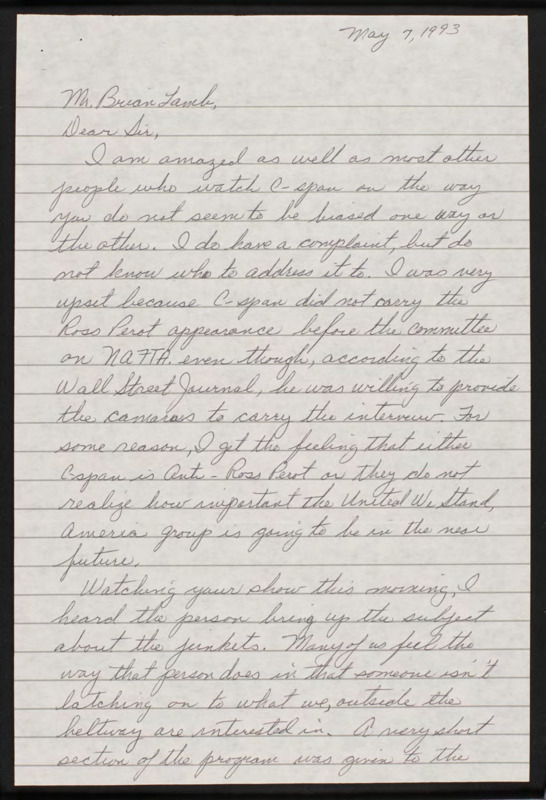 May 7, 1993
Mr. Brian Lamb,
Dear Sir,
I am amazed as well as most other
people who watch C-span on the way
you do not seem to be biased one way or
the other. I do have a complaint, but do
not know who to address it to. I was very
upset because C-span did not carry the
Ross Perot appearance before the committee
on NAFTA even though, according to the
Wall Street Journal, he was willing to provide
the camaras to carry the interview. For
some reason, I get the feeling that either
C-span is Anti-Ross Perot or they do not
realize how important the United We Stand,
America group is going to be in the near
future.
Watching your show this morning, I
heard the person bring up the subject
about the junkets. Many of us feel the
way that person does in that someone isn't
latching on to what we, outside the
beltway are interested in. A very short
section of the program was given to the